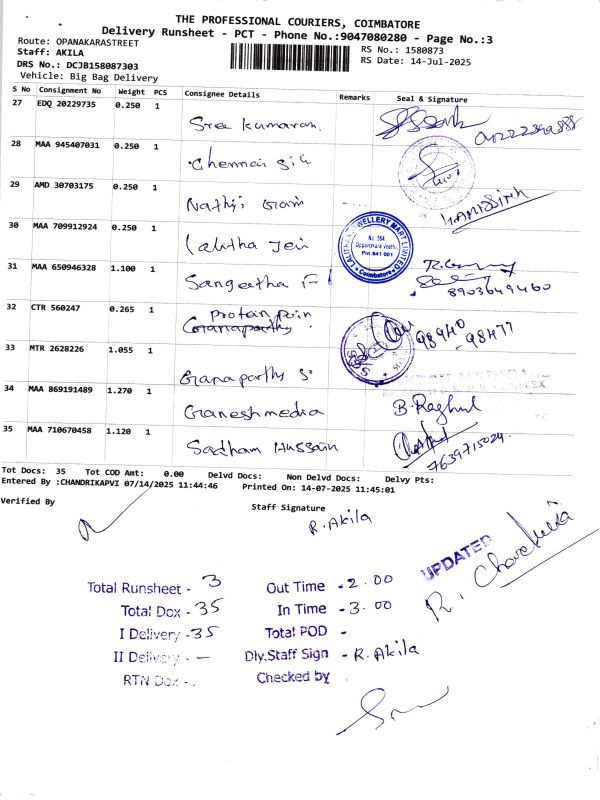 THE PROFESSIONAL COURIERS, COIMBATORE
Delivery Runsheet - PCT - Phone No.:9047080280 - Page No.:3
Route: OPANAKARASTREET
Staff: AKILA
DRS No.: DCJB158087303
Vehicle: Big Bag Delivery
RS No.: 1580873
RS Date: 14-Jul-2025
S No Consignment No Weight PCS Consignee Details Remarks Seal & Signature
27 EDQ 20229735 0.250 1 Sree kumaran.
28 MAA 945407031 0.250 1 Chennai Silk
29 AMD 30703175 0.250 1 Nathji Gram
30 MAA 709912924 0.250 1 Lalitha Jew
No. 564,
Oppanakara Veethi,
Pin 641 001
Coimbatore
31 MAA 650946328 1.100 1 Sangeetha
8903649460
32 CTR 560247 0.265 1 protein poin
Ganapathy
98940 - 98477
33 MTR 2628226 1.055 1 Ganapathy S
34 MAA 869191489 1.270 1 Ganesh media B. Raghul
35 MAA 710670458 1.120 1 Sadham Hussain
7639715024
Tot Docs: 35 Tot COD Amt: 0.00 Delvd Docs: Non Delvd Docs: Delvy Pts:
Entered By :CHANDRIKAPVI 07/14/2025 11:44:46 Printed On: 14-07-2025 11:45:01
Verified By Staff Signature
R. Akila
UPDATED
Total Runsheet - 3 Out Time - 2.00
Total Dox - 35 In Time - 3.00
I Delivery - 35 Total POD -
II Delivery - — Dly.Staff Sign - R. Akila
RTN Dox - Checked by